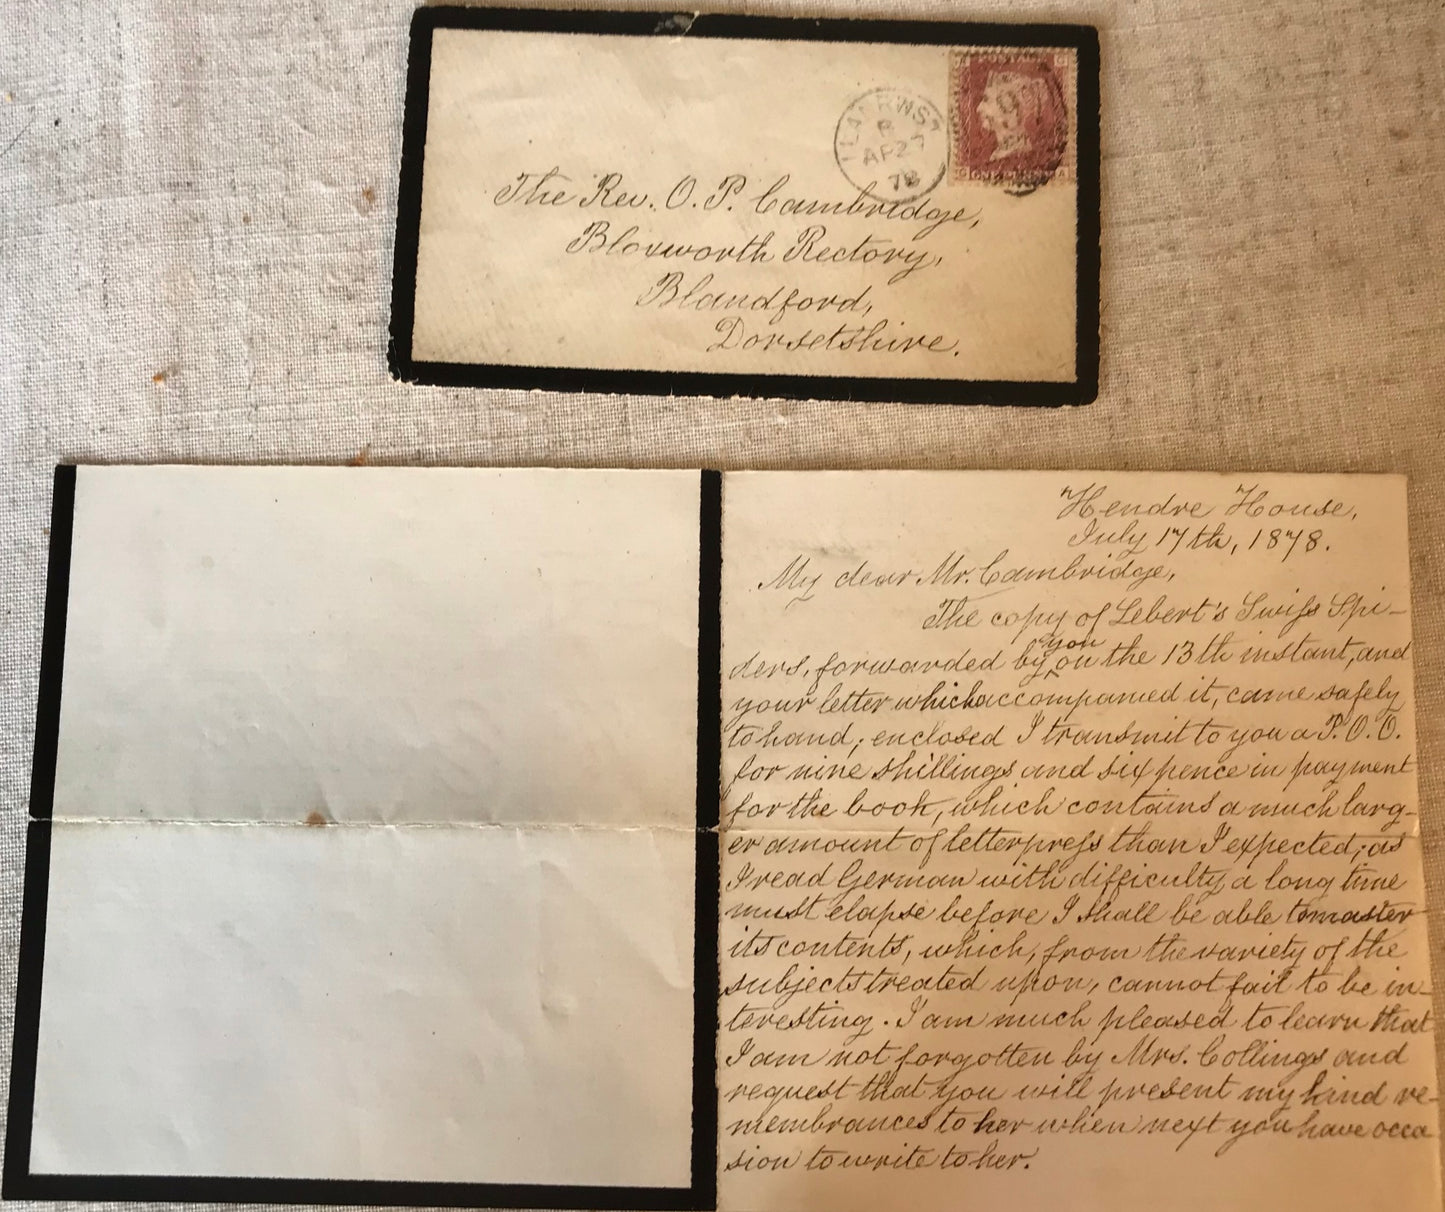 LLANRWST
B
AP 27
78
The Rev. O. P. Cambridge,
Bloxworth Rectory,
Blandford,
Dorsetshire.
Hendre House,
July 17th, 1878.
My dear Mr. Cambridge,
The copy of Lebert's Swiss Spi-
ders, forwarded by you on the 13th instant, and
your letter which accompanied it, came safely
to hand; enclosed I transmit to you a P. O. O.
for nine shillings and six pence in payment
for the book, which contains a much larg-
er amount of letterpress than I expected; as
I read German with difficulty a long time
must elapse before I shall be able to master
its contents, which, from the variety of the
subjects treated upon, cannot fail to be in-
teresting. I am much pleased to learn that
I am not forgotten by Mrs. Collings and
request that you will present my kind re-
membrances to her when next you have occa
sion to write to her.